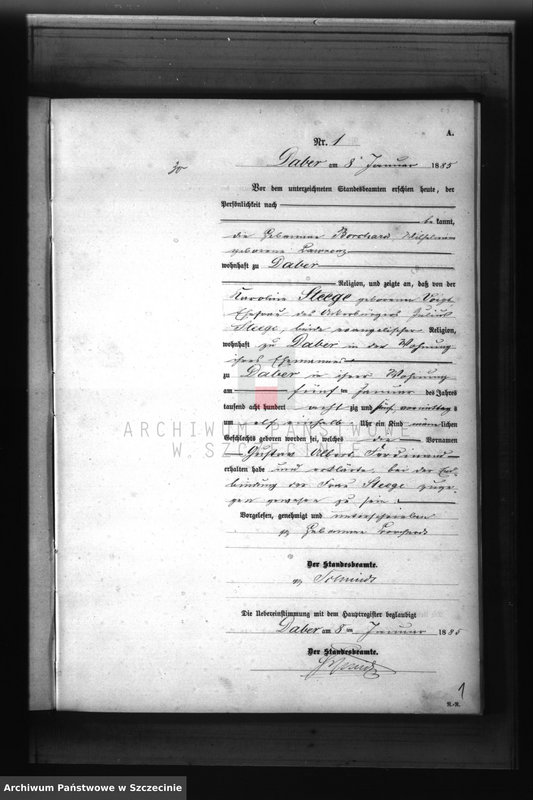 A.
Nr. 1
30
Daber am 8 Januar 1885
Vor dem unterzeichneten Standesbeamten erschien heute, der
Persönlichkeit nach
bekannt,
die Hebamme Borchard, Wilhelmine
geborene
wohnhaft zu Daber
Religion, und zeigte an, daß von der
Karoline Steege geborenen Voigt,
Ehefrau des Ackerbürgers Julius
Steege, beide evangelischer Religion,
wohnhaft zu Daber in der Wohnung
ihres Ehemannes
zu Daber in ihrer Wohnung
am fünften Januar des Jahres
tausend acht hundert achtzig und fünf vormittags
um elf einhalb Uhr ein Kind männlichen
Geschlechts geboren worden sei, welches die Vornamen
Gustav Albert Ferdinand
erhalten habe und erklärte, bei der Ent-
bindung der Frau Steege zuge-
gen gewesen zu sein.
Vorgelesen, genehmigt und unterschrieben
gez Hebamme Borchard
Der Standesbeamte.
gez Schmidt
Die Uebereinstimmung mit dem Hauptregister beglaubigt
Daber am 8 ten Januar 1885
Der Standesbeamte.
1
ARCHIWUM PAŃSTWOWE
W SZCZECINIE
Archiwum Państwowe w Szczecinie